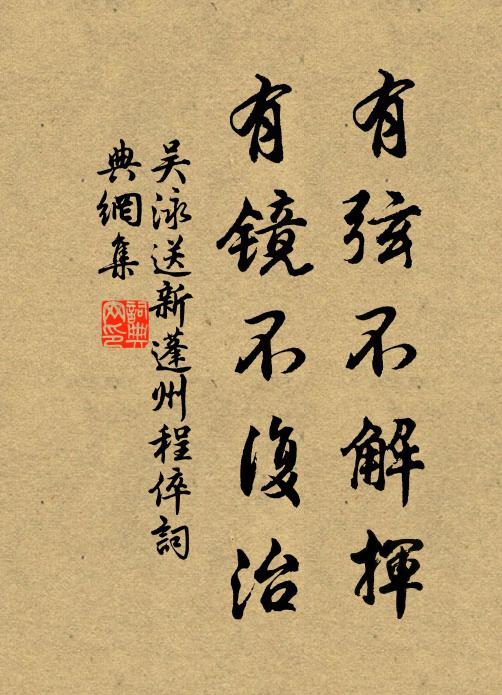 有弦不解揮
有鏡不復治
吴泳送新蓬州程倅詞
典網集
詞典網印